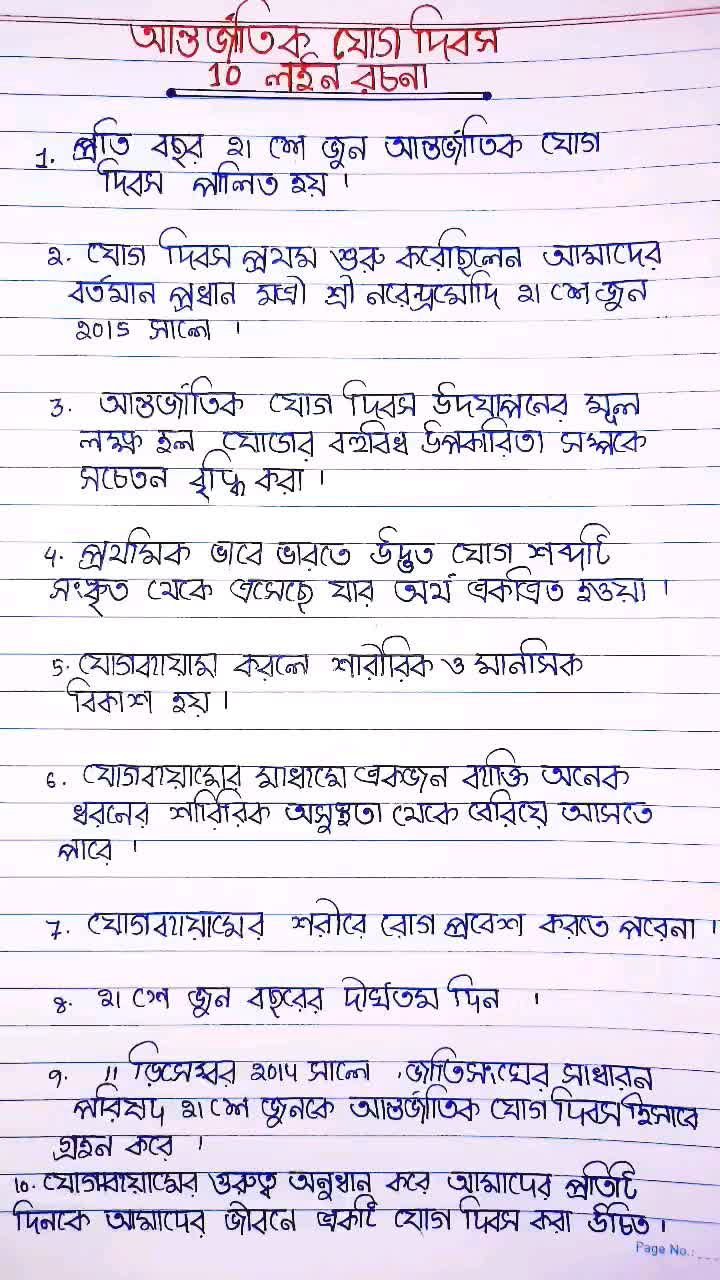 আন্তর্জাতিক যোগ দিবস
10 লাইন রচনা
1. প্রতি বছর ২১ শে জুন আন্তর্জাতিক যোগ
দিবস পালিত হয় ।
২. যোগ দিবস প্রথম শুরু করেছিলেন আমাদের
বর্তমান প্রধান মন্ত্রী শ্রী নরেন্দ্রমোদি ২১ শে জুন
২০15 সালে ।
3. আন্তর্জাতিক যোগ দিবস উদযাপনের মূল
লক্ষ হল যোগের বহুবিধ উপকারিতা সম্পকে
সচেতন বৃদ্ধি করা ।
4. প্রথমিক ভাবে ভারতে উদ্ভুত যোগ শব্দটি
সংস্কৃত থেকে এসেছে যার অর্থ একত্রিত হওয়া ।
5. যোগব্যায়াম করলে শারীরিক ও মানসিক
বিকাশ হয় ।
6. যোগব্যায়ামের মাধ্যমে একজন ব্যক্তি অনেক
ধরনের শারিরিক অসুস্থতা থেকে বেরিয়ে আসতে
পারে ।
7. যোগব্যায়ামের শরীরে রোগ প্রবেশ করতে পরেনা ।
8. ২১ শে জুন বছরের দীর্ঘতম দিন ।
9. 11 ডিসেম্বর ২০14 সালে জাতিসংঘের সাধারন
পরিষদ ২১ শে জুনকে আন্তর্জাতিক যোগ দিবস হিসাবে
গ্রহন করে ।
10. যোগব্যায়ামের গুরুত্ব অনুধান করে আমাদের প্রতিটি
দিনকে আমাদের জীবনে একটি যোগ দিবস করা উচিত ।
Page No.: